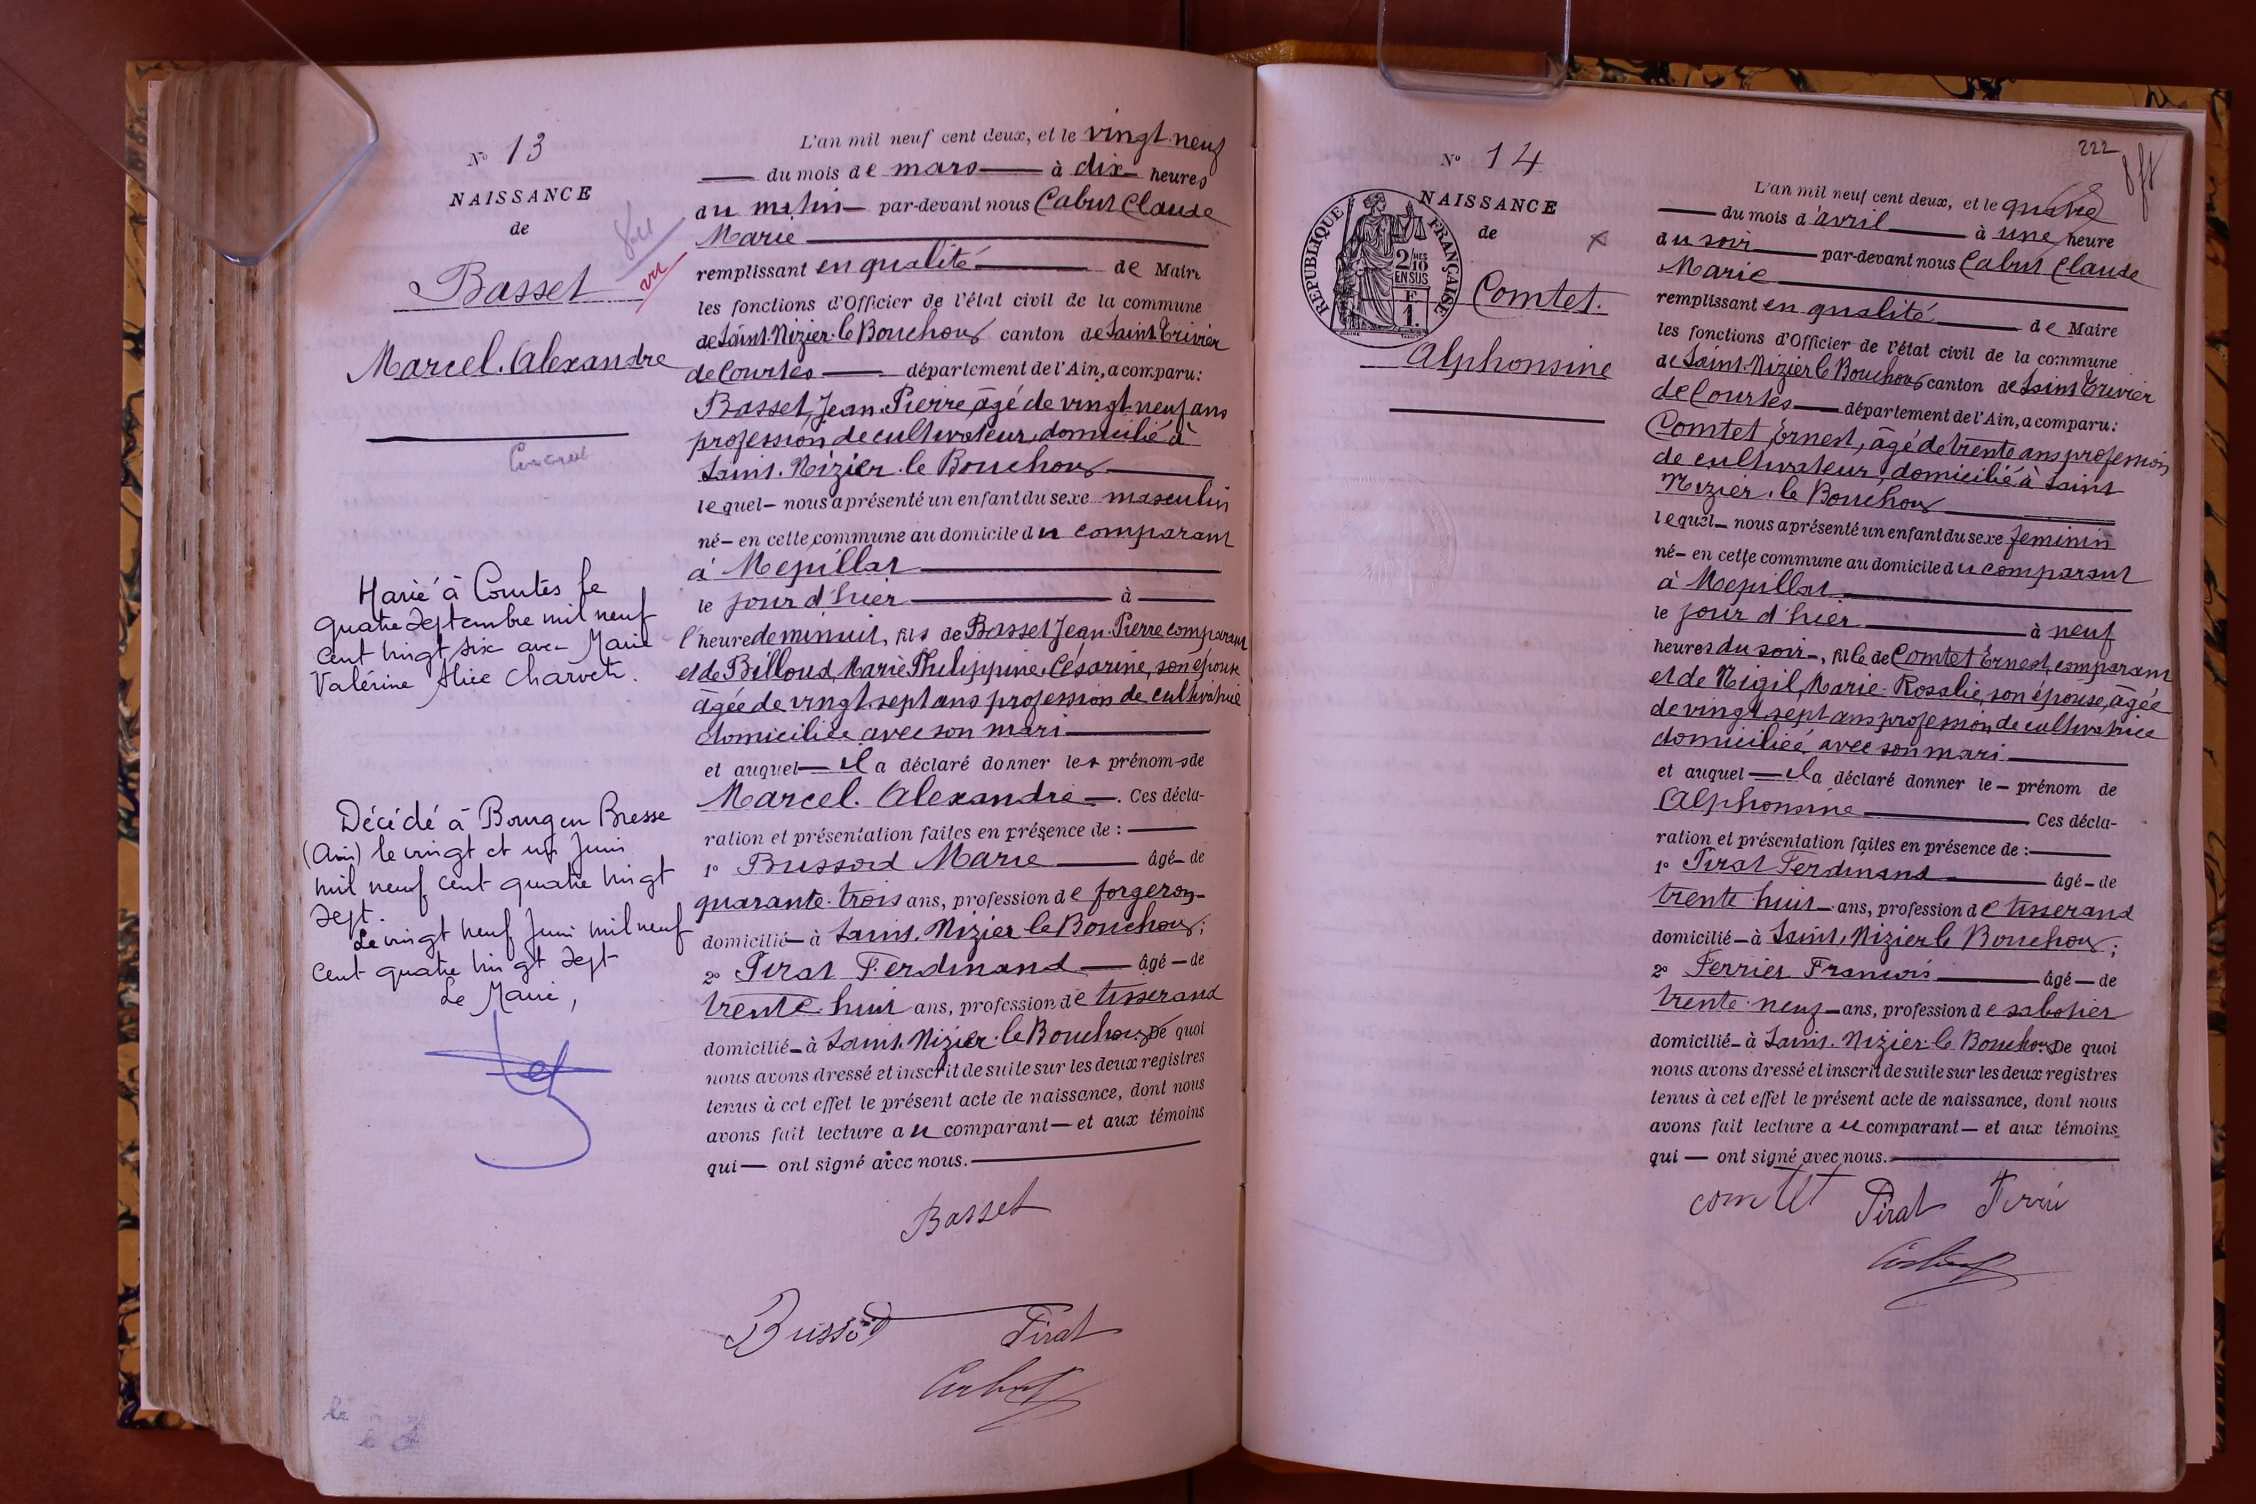 Nº 13
NAISSANCE
de
Basset
vu
Marcel. Alexandre
Marié à Courtes le
quatre Septembre mil neuf
cent vingt six avec Marie
Valérine Alice Charvet.
Décédé à Bourg en Bresse
(Ain) le vingt et un Juin
mil neuf cent quatre vingt
sept.
Le vingt neuf Juin mil neuf
cent quatre vingt sept
Le Maire,
L'an mil neuf cent deux, et le vingt-neuf
du mois de mars à dix heures
du matin par-devant nous Cabut Claude
Marie
remplissant en qualité de Maire
les fonctions d'Officier de l'état civil de la commune
de Saint-Nizier-le Bouchoux canton de Saint Trivier
de Courtes département de l'Ain, a comparu:
Basset, Jean-Pierre âgé de vingt-neuf ans
profession de cultivateur, domicilié à
Saint-Nizier-le Bouchoux
lequel nous a présenté un enfant du sexe masculin
né en cette commune au domicile du comparant
à Mépillat
le jour d'hier à
l'heure de minuit, fils de Basset Jean-Pierre comparant
et de Billoud, Marie Philippine Césarine, son épouse
âgée de vingt-sept ans profession de cultivatrice
domiciliée avec son mari
et auquel il a déclaré donner les prénoms de
Marcel. Alexandre. Ces décla-
ration et présentation faites en présence de :
1º Bussod Marie âgé de
quarante-trois ans, profession de forgeron
domicilié à Saint-Nizier le Bouchoux;
2º Pirat Ferdinand âgé de
trente-huit ans, profession de tisserand
domicilié à Saint-Nizier-le Bouchoux. De quoi
nous avons dressé et inscrit de suite sur les deux registres
tenus à cet effet le présent acte de naissance, dont nous
avons fait lecture au comparant et aux témoins
qui ont signé avec nous.
Basset
Bussod Pirat
Cabut
222
Nº 14
NAISSANCE
de
RÉPUBLIQUE FRANÇAISE
2/10
EN SUS
F
1.
Comtet.
Alphonsine
L'an mil neuf cent deux, et le quatre
du mois d'avril à une heure
du soir par-devant nous Cabut Claude
Marie
remplissant en qualité de Maire
les fonctions d'Officier de l'état civil de la commune
de Saint-Nizier le Bouchoux canton de Saint Trivier
de Courtes département de l'Ain, a comparu:
Comtet, Ernest, âgé de trente ans profession
de cultivateur, domicilié à Saint
Nizier-le Bouchoux
lequel nous a présenté un enfant du sexe feminin
né en cette commune au domicile du comparant
à Mépillat
le jour d'hier à neuf
heures du soir, fille de Comtet Ernest, comparant
et de Nigil, Marie-Rosalie, son épouse, âgée
de vingt-sept ans profession de cultivatrice
domiciliée avec son mari
et auquel il a déclaré donner le prénom de
Alphonsine Ces décla-
ration et présentation faites en présence de :
1º Pirat Ferdinand âgé de
trente-huit ans, profession de tisserand
domicilié à Saint-Nizier le Bouchoux;
2º Ferrier Francois âgé de
trente-neuf ans, profession de sabotier
domicilié à Saint-Nizier-le Bouchoux. De quoi
nous avons dressé et inscrit de suite sur les deux registres
tenus à cet effet le présent acte de naissance, dont nous
avons fait lecture au comparant et aux témoins
qui ont signé avec nous.
comtet Pirat
Cabut